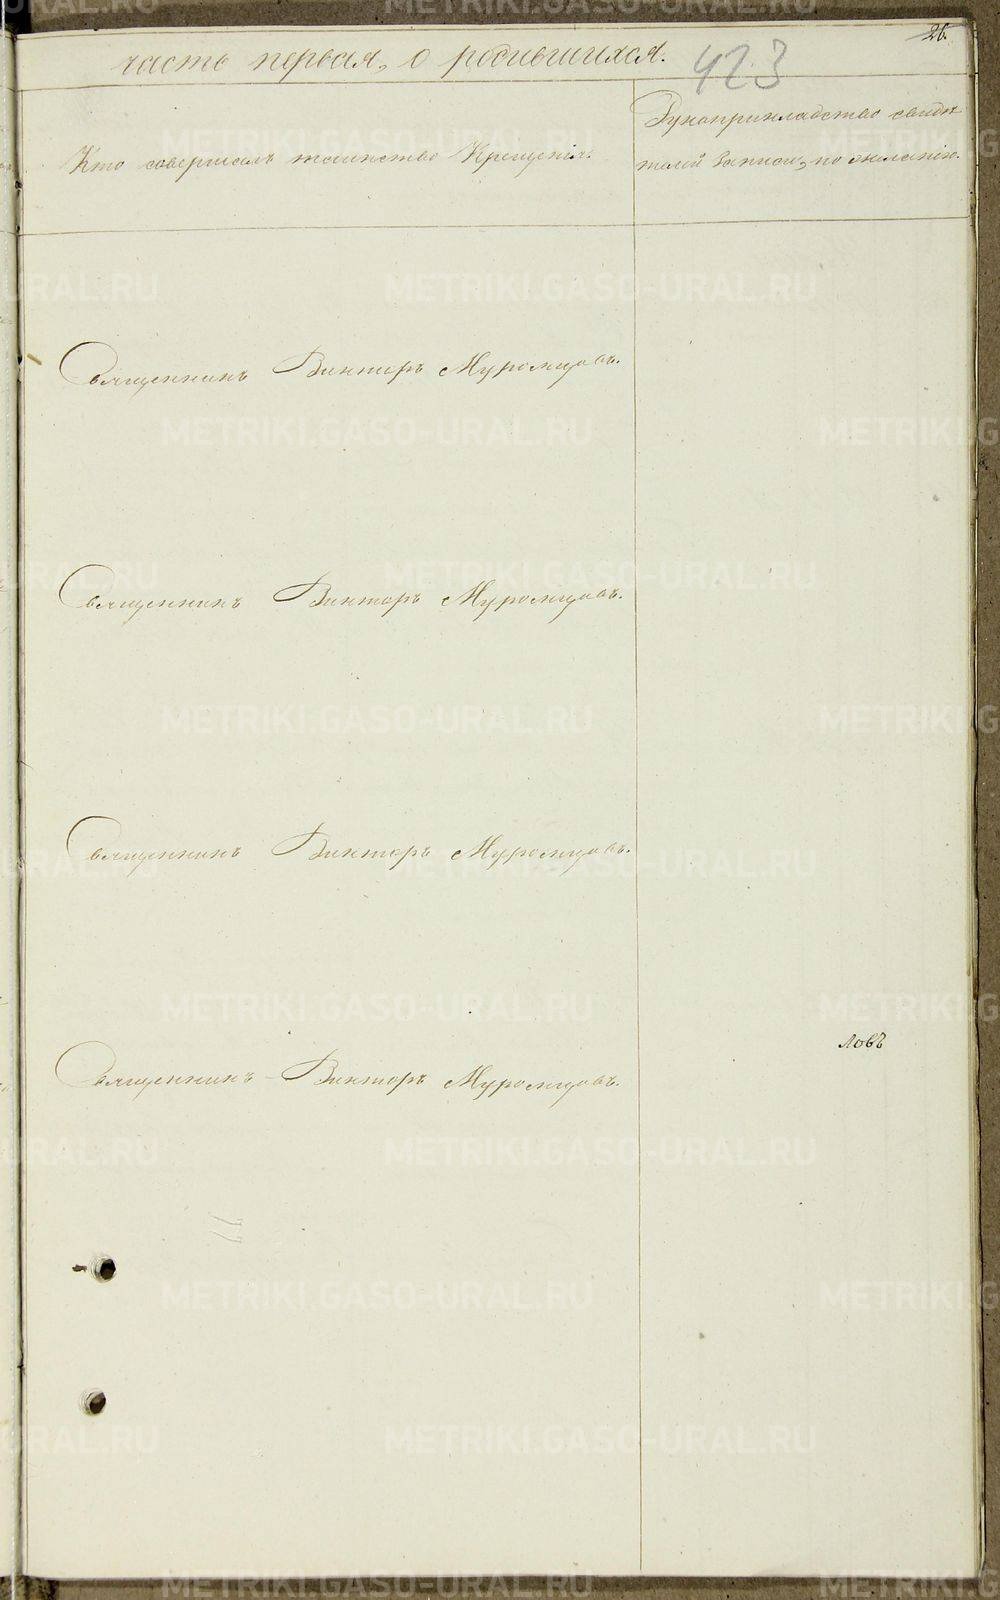 26.
часть первая, о родившихся.
423
Кто совершалъ таинство Крещенія.
Рукоприкладство свидѣ
телей записи, по желанію.
Священникъ Викторъ Муромцовъ.
Священникъ Викторъ Муромцовъ.
Священникъ Викторъ Муромцовъ.
ловъ
Священникъ Викторъ Муромцовъ.
METRIKI.GASO-URAL.RU